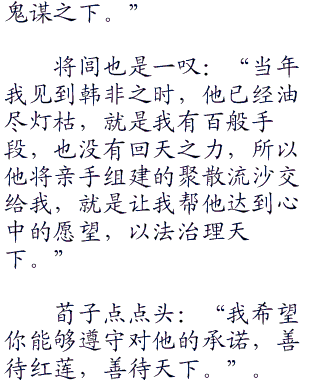 鬼谋之下。”
将闾也是一叹：“当年
我见到韩非之时，他已经油
尽灯枯，就是我有百般手
段，也没有回天之力，所以
他将亲手组建的聚散流沙交
给我，就是让我帮他达到心
中的愿望，以法治理天
下。”
荀子点点头：“我希望
你能够遵守对他的承诺，善
待红莲，善待天下。”。